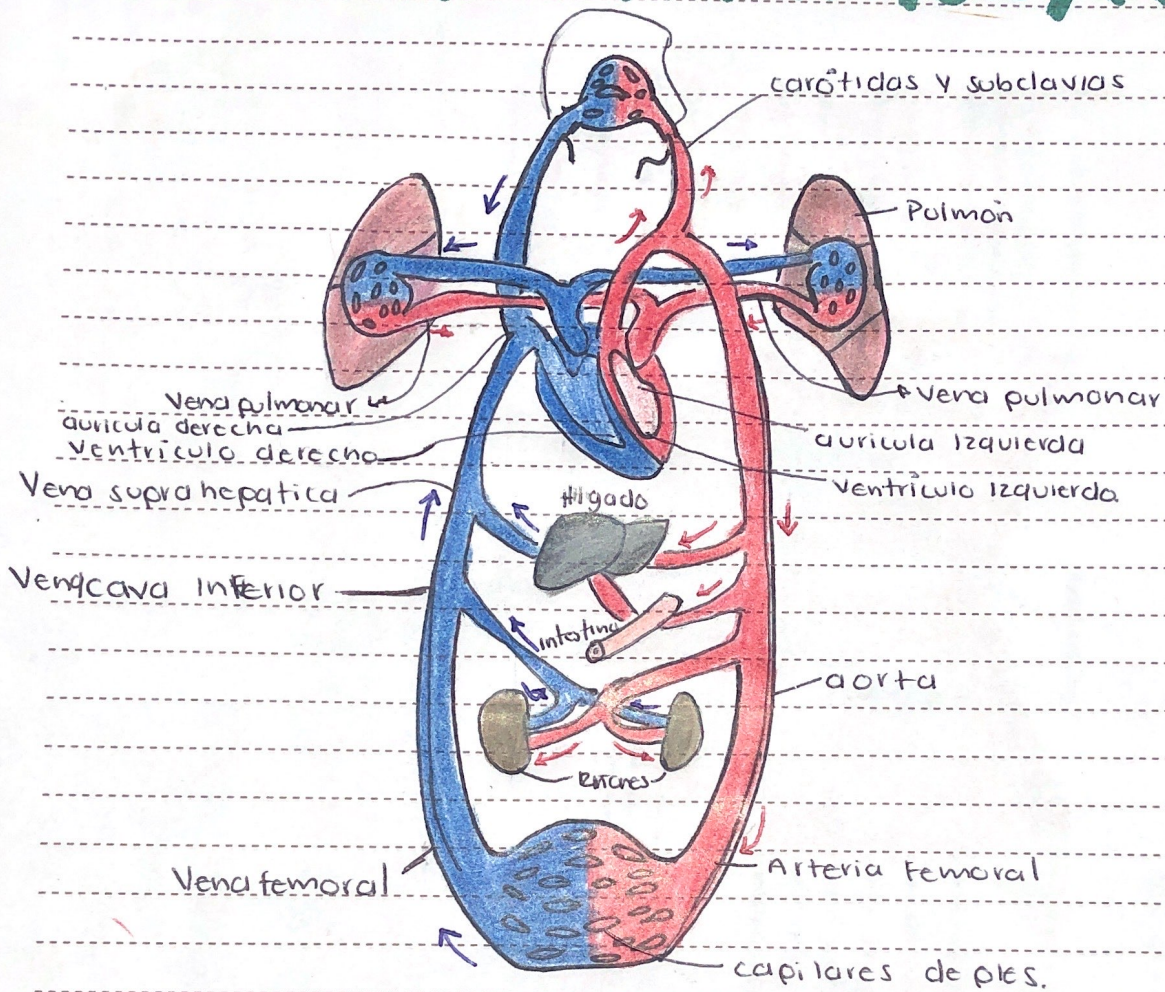 carótidas y subclavias
Pulmón
Vena pulmonar
auricula derecha
ventrículo derecho
Vena suprahepatica
Vena pulmonar
auricula Izquierda
ventrículo Izquierda
Higado
Venacava Inferior
intestino
aorta
Riñones
Vena femoral
Arteria Femoral
capilares de pies.